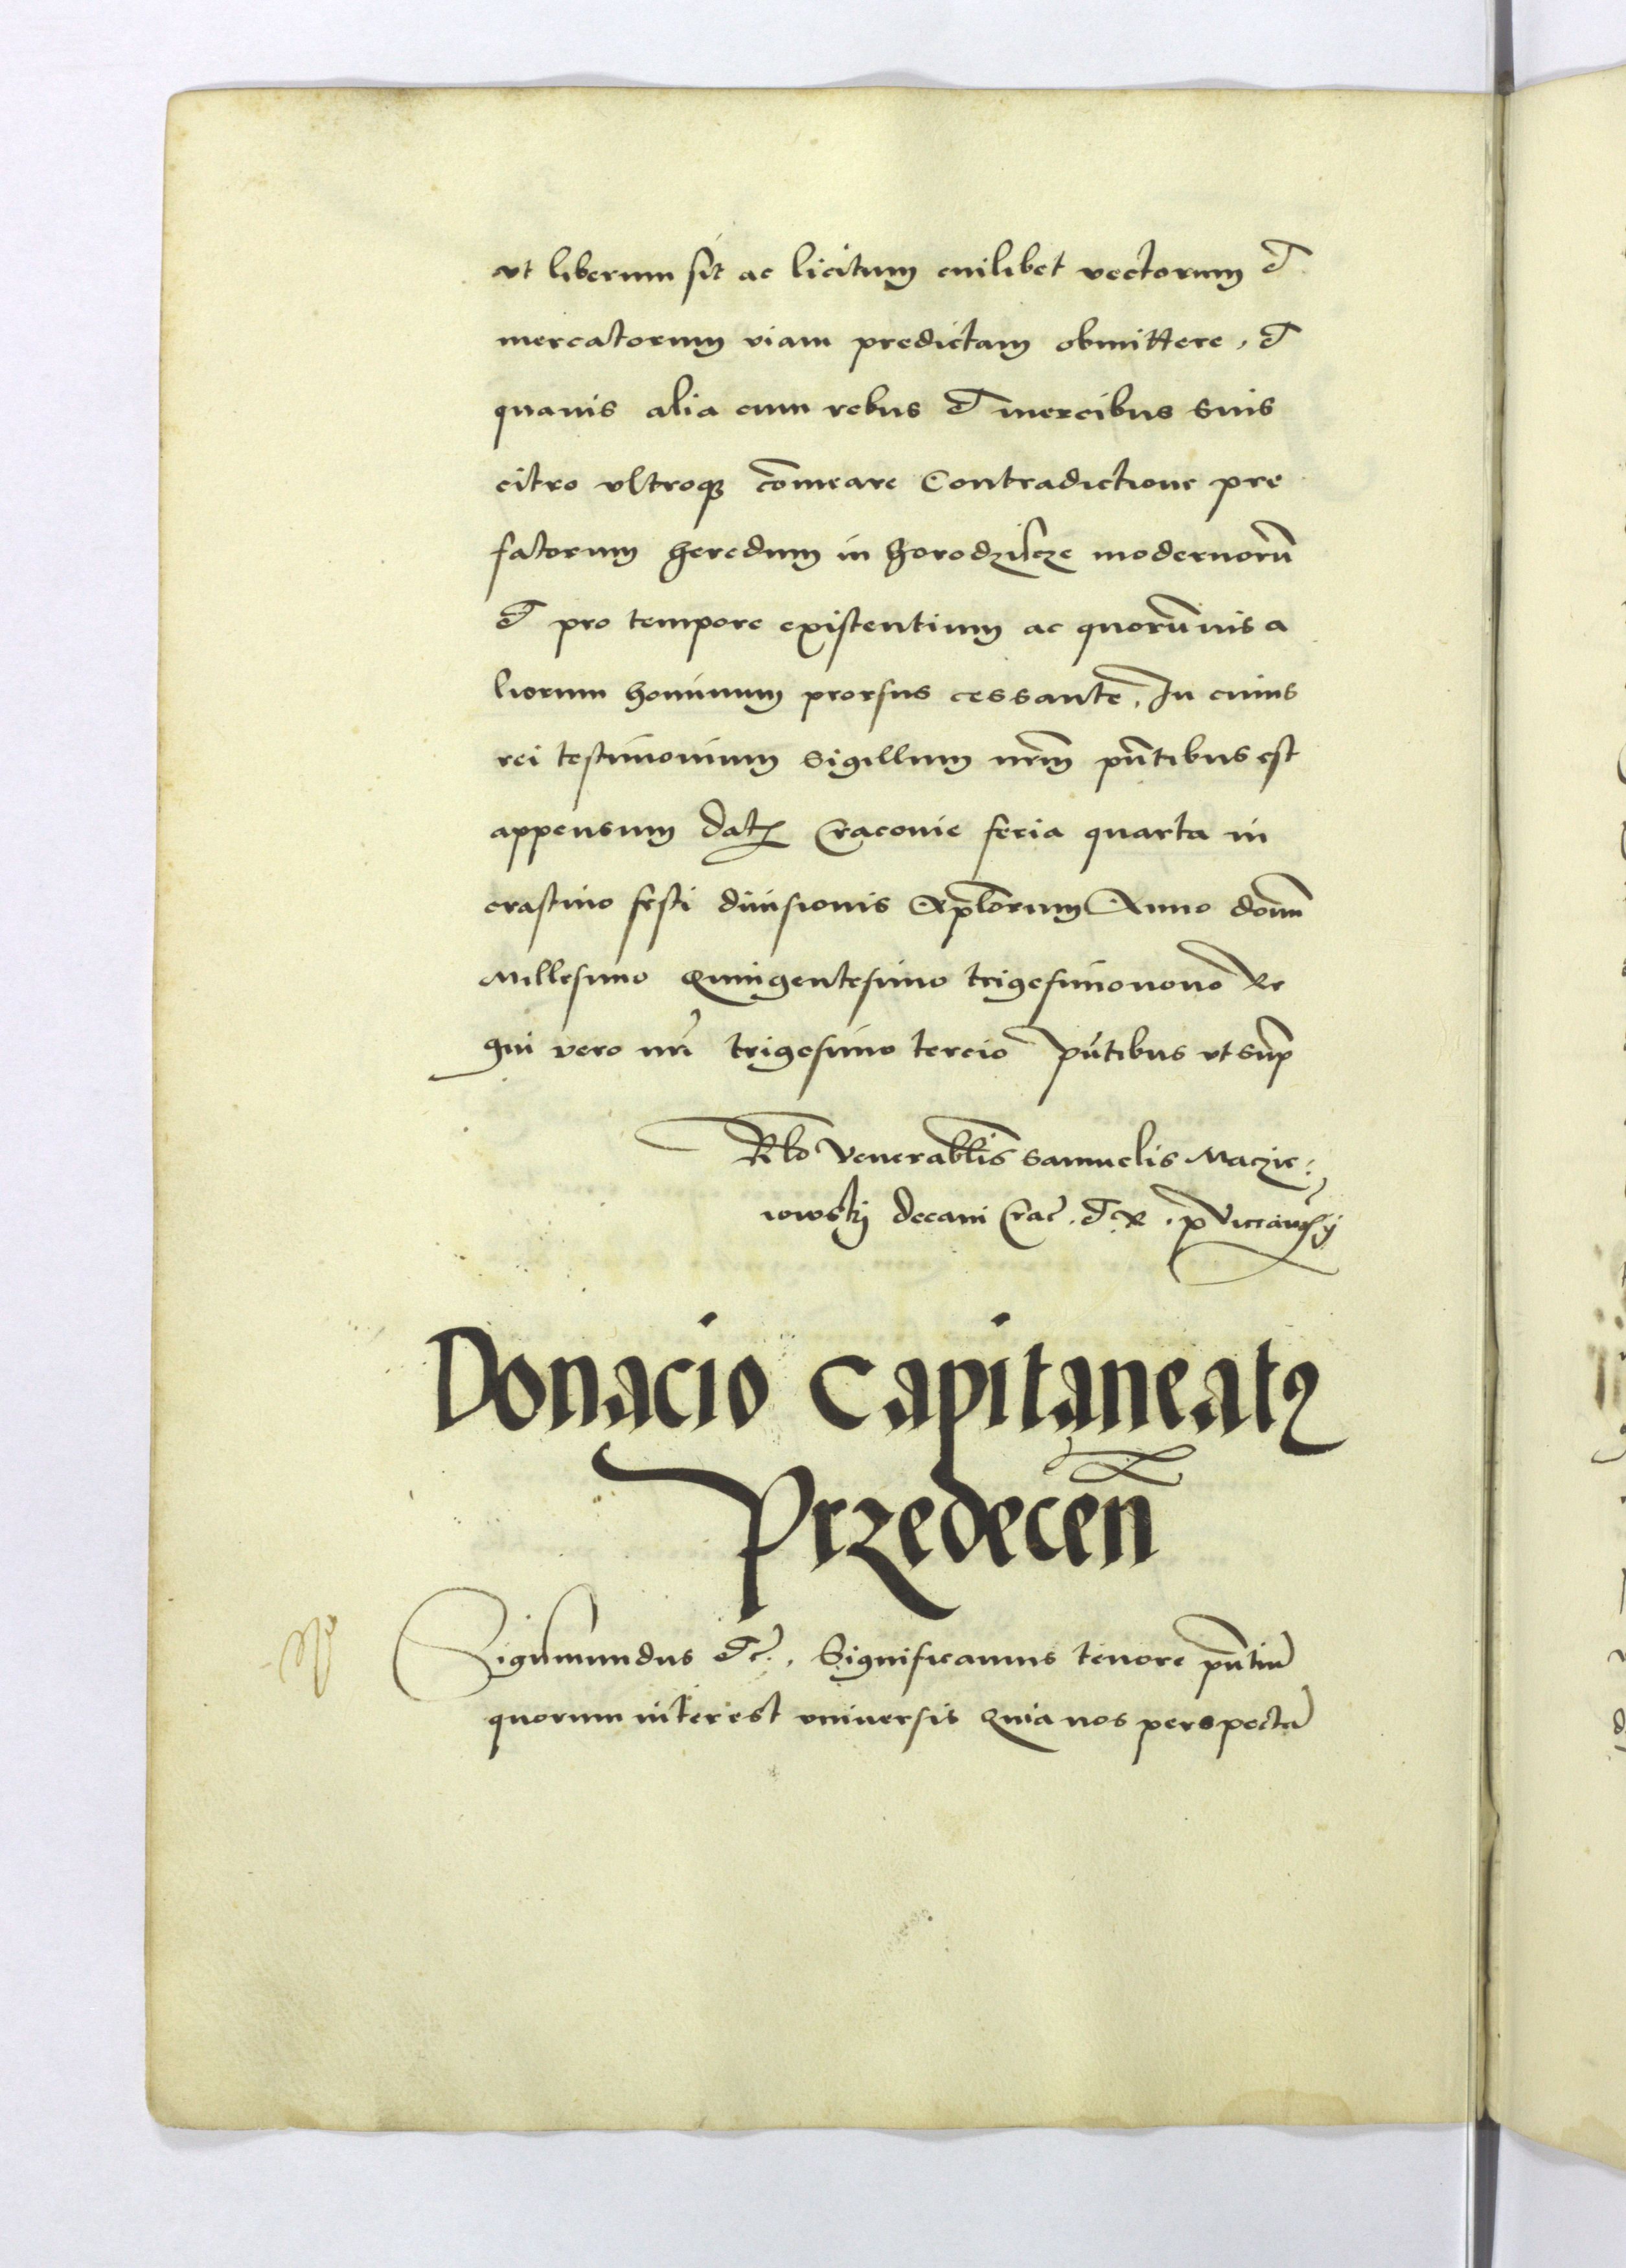 vt liberum sit ac licitum cuilibet vectorum et
mercatorum viam predictam obmittere, et
quauis alia cum rebus et mercibus suis
citro vltroqꝫ co͞meare Contradictione pre
fatorum heredum in horodzilcze modernoru͞
et pro tempore existentium ac quoru͞uis a
liorum hominum prorsus cessante. In cuius
rei testimonium Sigillum nr͞m pn͞tibus est
appensum Datꝭ Cracouie feria quarta in
crastino festi diuisionis Ap͞lorum Anno dom͞
Millesimo Quingentesimo trigesimonono Re
gni vero nr͞i trigesimo tercio Pn͞tibus vt sup͞
Rl͞o Venerabil͞is Samuelis Maczie:
iowskij Decani Crac͞. et R. p Vicecancl͞ꝭ
Donacio Capitaneatꝰ
Przedecen͞
Sigismundus etc͞., Significamus tenore pn͞tiu͞
quorum interest vniuersis Quia nos perspecta͞